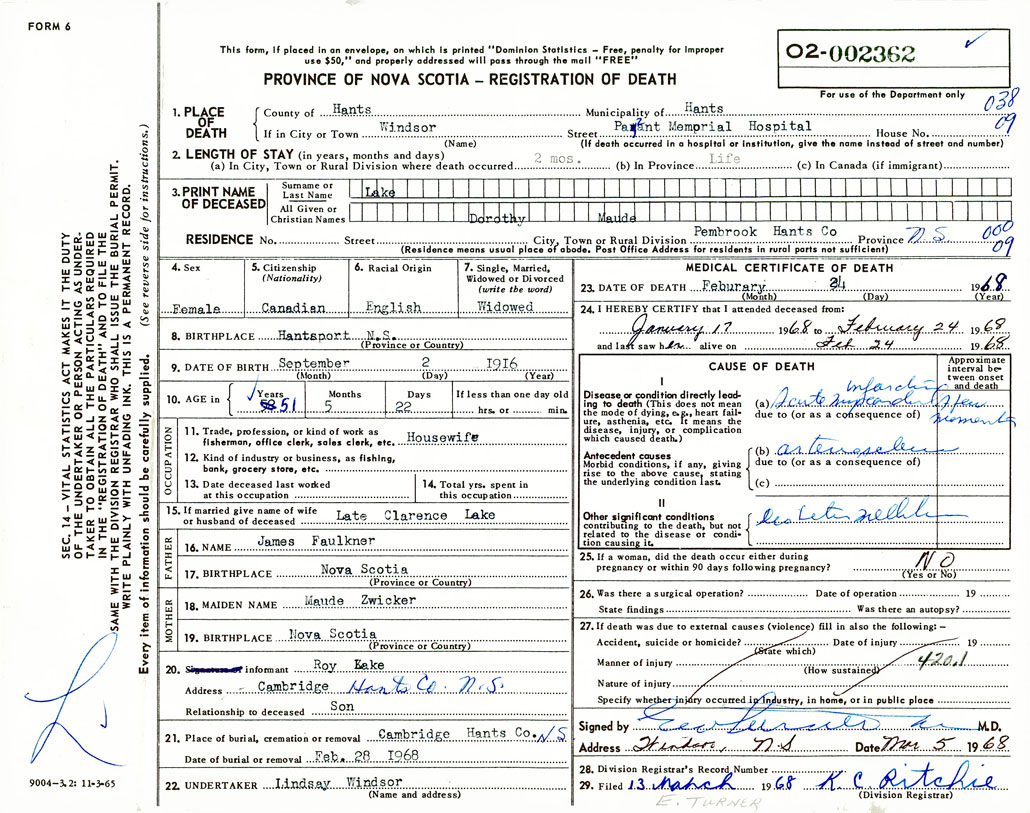 FORM 6
This form, if placed in an envelope, on which is printed "Dominion Statistics – Free, penalty for improper
use $50," and properly addressed will pass through the mail "FREE"
PROVINCE OF NOVA SCOTIA – REGISTRATION OF DEATH
02-002362
For use of the Department only
038
09
1. PLACE OF DEATH
County of Hants Municipality of Hants
If in City or Town Windsor Street Memprial Hospital House No.
(Name) (If death occurred in a hospital or institution, give the name instead of street and number)
2. LENGTH OF STAY (in years, months and days)
(a) In City, Town or Rural Division where death occurred 2 mos. (b) In Province Life (c) In Canada (if immigrant)
3. PRINT NAME OF DECEASED
Surname or Last Name Lake
All Given or Christian Names Dorothy Maude
RESIDENCE No. Street City, Town or Rural Division Pembrook Hants Co Province N S
(Residence means usual place of abode. Post Office Address for residents in rural parts not sufficient)
000
09
4. Sex
Female
5. Citizenship (Nationality)
Canadian
6. Racial Origin
English
7. Single, Married, Widowed or Divorced (write the word)
Widowed
8. BIRTHPLACE Hantsport N.S.
(Province or Country)
9. DATE OF BIRTH September 2 1916
(Month) (Day) (Year)
10. AGE in
Years Months Days If less than one day old
51 5 22 hrs. or min.
OCCUPATION
11. Trade, profession, or kind of work as
fisherman, office clerk, sales clerk, etc. Housewife
12. Kind of industry or business, as fishing,
bank, grocery store, etc.
13. Date deceased last worked
at this occupation
14. Total yrs. spent in
this occupation
15. If married give name of wife
or husband of deceased Late Clarence Lake
FATHER
16. NAME James Faulkner
17. BIRTHPLACE Nova Scotia
(Province or Country)
MOTHER
18. MAIDEN NAME Maude Zwicker
19. BIRTHPLACE Nova Scotia
(Province or Country)
20. Signature of informant Roy Lake
Address Cambridge Hants Co. N.S.
Relationship to deceased Son
21. Place of burial, cremation or removal Cambridge Hants Co. N.S
Date of burial or removal Feb. 28 1968
22. UNDERTAKER Lindsay Windsor
(Name and address)
MEDICAL CERTIFICATE OF DEATH
23. DATE OF DEATH Feburary 24 1968
(Month) (Day) (Year)
24. I HEREBY CERTIFY that I attended deceased from:
January 17 1968 to February 24 1968
and last saw her alive on Feb 24 1968
CAUSE OF DEATH
Approximate interval between onset and death
I
Disease or condition directly lead-
ing to death (This does not mean
the mode of dying, e.g., heart fail-
ure, asthenia, etc. It means the
disease, injury, or complication
which caused death.)
(a) Acute myocardial infarction few moments
due to (or as a consequence of)
Antecedent causes
Morbid conditions, if any, giving
rise to the above cause, stating
the underlying condition last.
(b)
due to (or as a consequence of)
(c)
II
Other significant conditions
contributing to the death, but not
related to the disease or condi-
tion causing it.
25. If a woman, did the death occur either during
pregnancy or within 90 days following pregnancy? NO
(Yes or No)
26. Was there a surgical operation? Date of operation 19
State findings Was there an autopsy?
27. If death was due to external causes (violence) fill in also the following: –
Accident, suicide or homicide? Date of injury 19
(State which)
Manner of injury 420.1
(How sustained)
Nature of injury
Specify whether injury occurred in industry, in home, or in public place
Signed by M.D.
Address Windsor, N S Date Mar 5 1968
28. Division Registrar's Record Number
29. Filed 13 March 1968 K. C. Ritchie
(Division Registrar)
E. TURNER
SEC. 14 – VITAL STATISTICS ACT MAKES IT THE DUTY
OF THE UNDERTAKER OR PERSON ACTING AS UNDER-
TAKER TO OBTAIN ALL THE PARTICULARS REQUIRED
IN THE "REGISTRATION OF DEATH" AND TO FILE THE
SAME WITH THE DIVISION REGISTRAR WHO SHALL ISSUE THE BURIAL PERMIT.
WRITE PLAINLY WITH UNFADING INK. THIS IS A PERMANENT RECORD.
Every item of information should be carefully supplied. (See reverse side for instructions.)
9004–3.2: 11-3-65